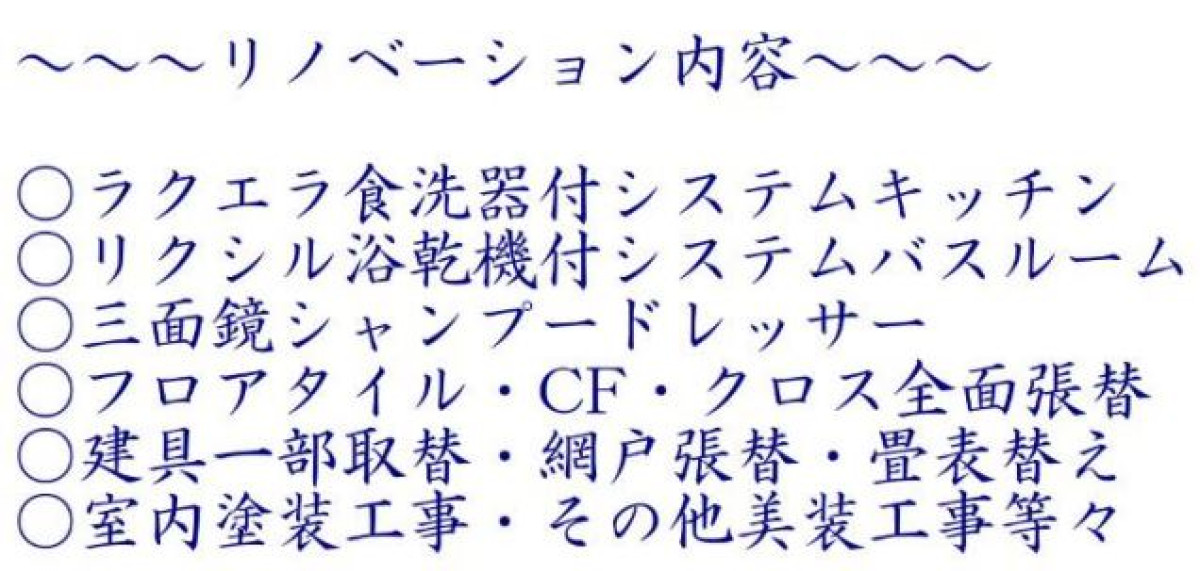 ～～～リノベーション内容～～～
○ラクエラ食洗器付システムキッチン
○リクシル浴乾機付システムバスルーム
○三面鏡シャンプードレッサー
○フロアタイル・CF・クロス全面張替
○建具一部取替・網戸張替・畳表替え
○室内塗装工事・その他美装工事等々